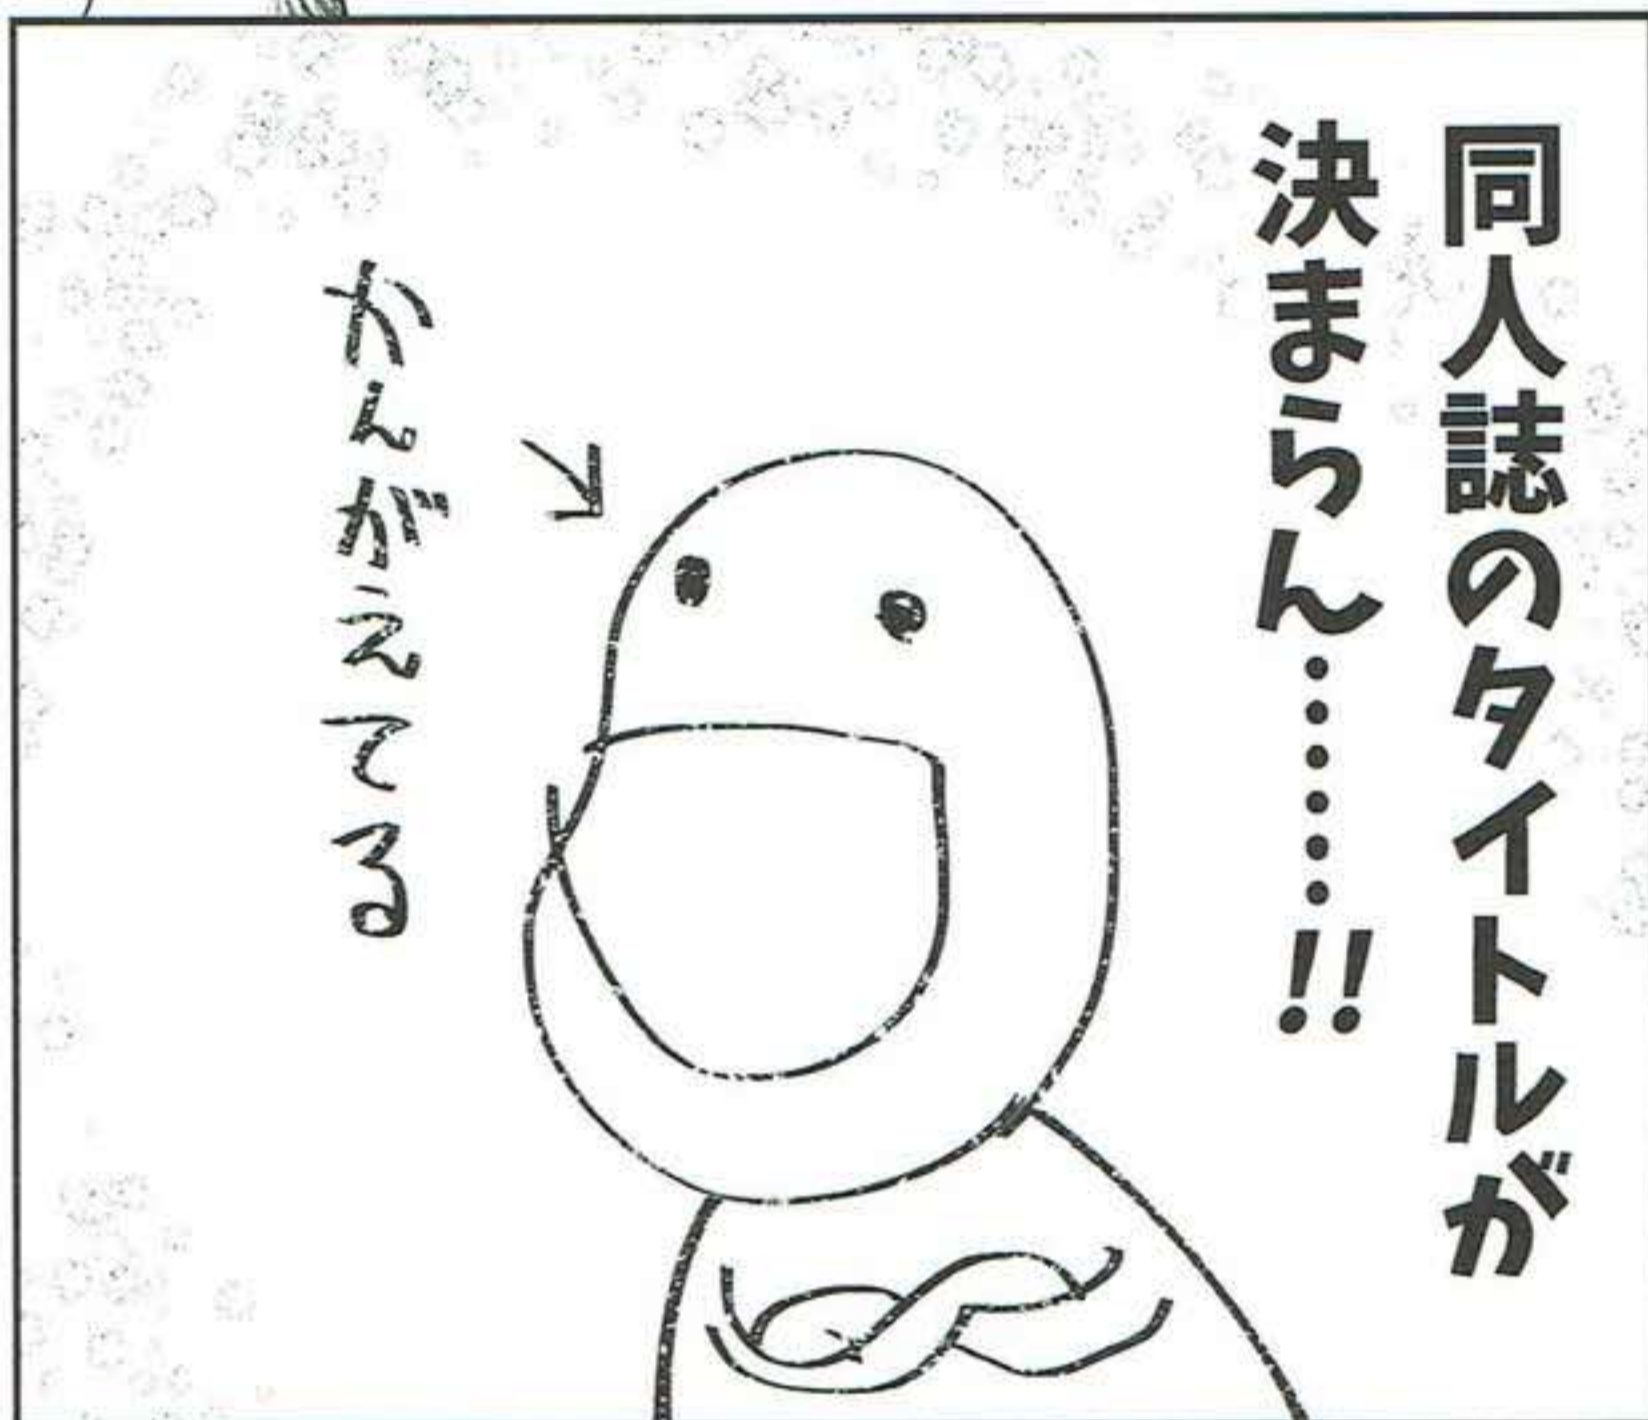 同人誌のタイトルが
決まらん……!!
かんがえてる